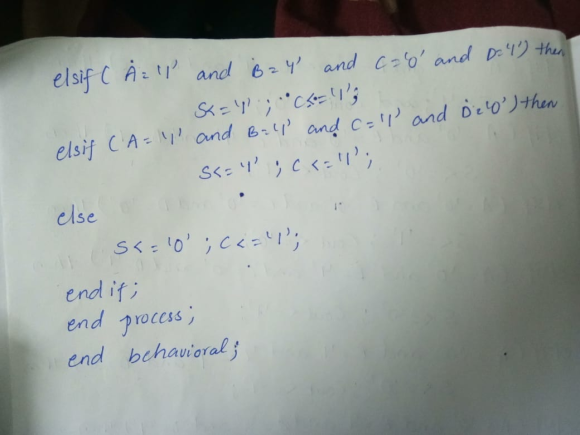 elsif ( A = '1' and B = '1' and C = '0' and D = '1') then
S <= '1' ; C <= '1' ;
elsif ( A = '1' and B = '1' and C = '1' and D = '0' ) then
S <= '1' ; C <= '1' ;
else
S <= '0' ; C <= '1' ;
end if ;
end process ;
end behavioral ;